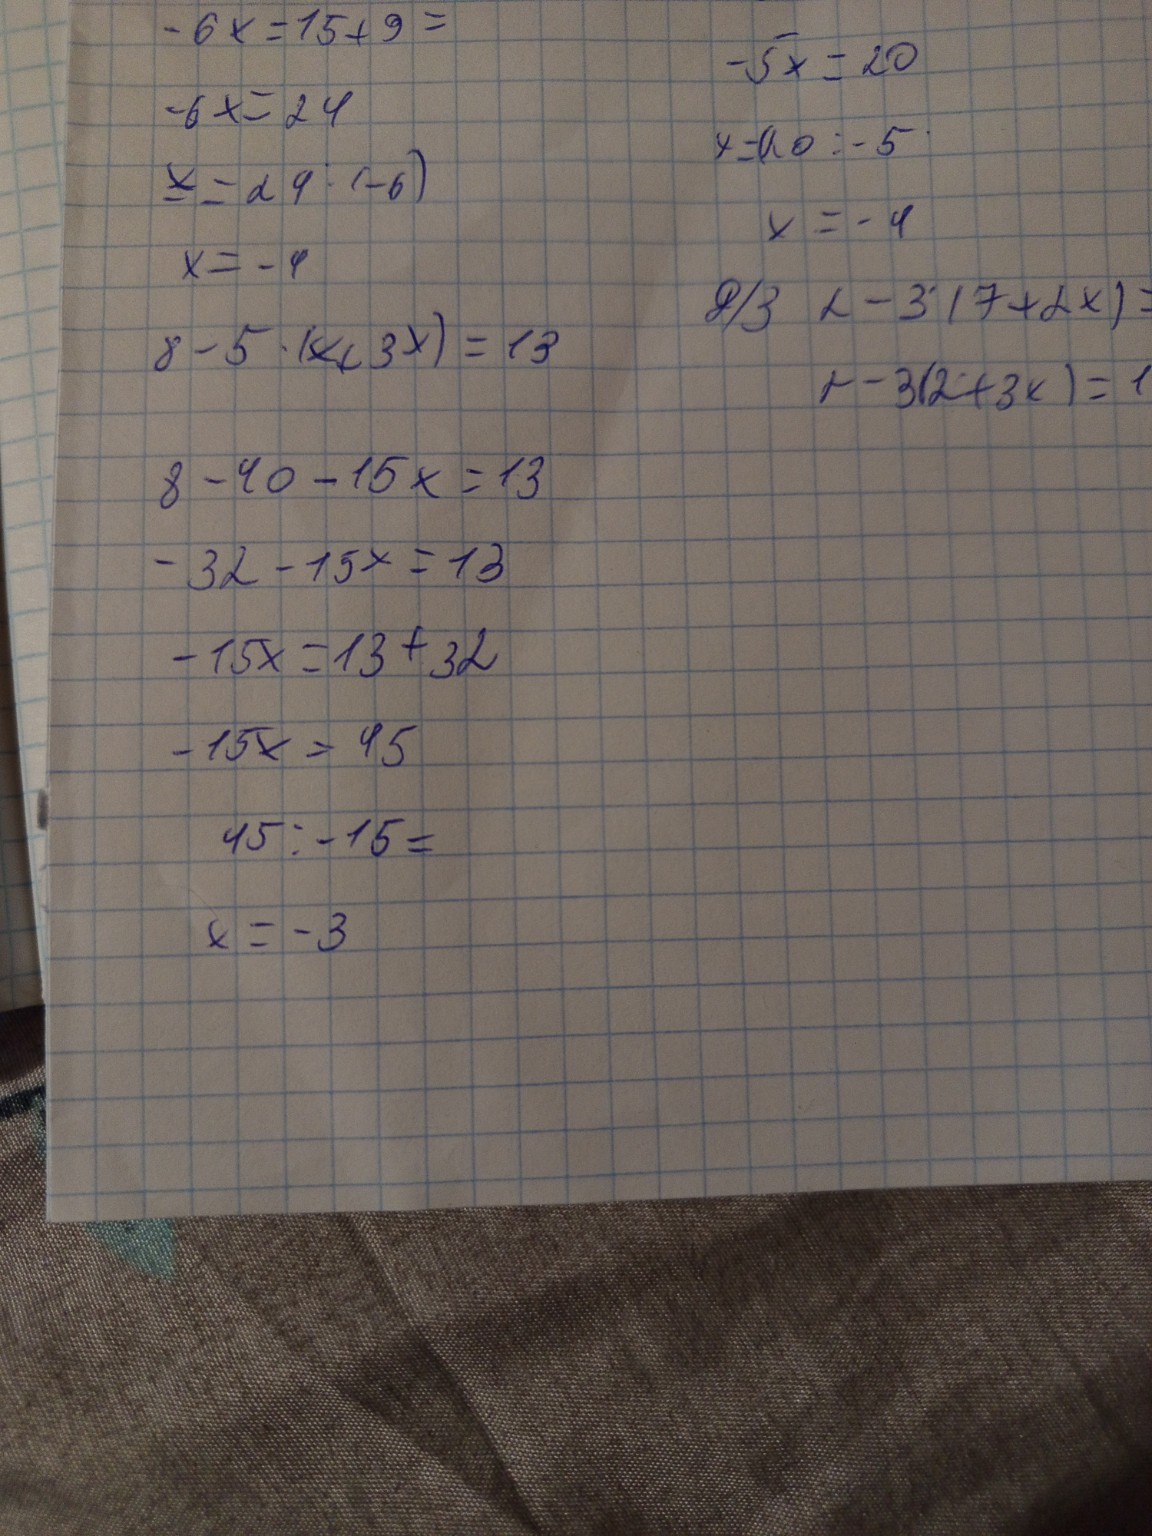 -6x=15+9=
-6x=24
x=24:(-6)
x=-4
8-5·(x+3x)=13
8-40-15x=13
-32-15x=13
-15x=13+32
-15x=45
45:-15=
x=-3
-5x=20
x=20:-5
x=-4
Д/З 2-3(7+2x)=
-3(2+3x)=1